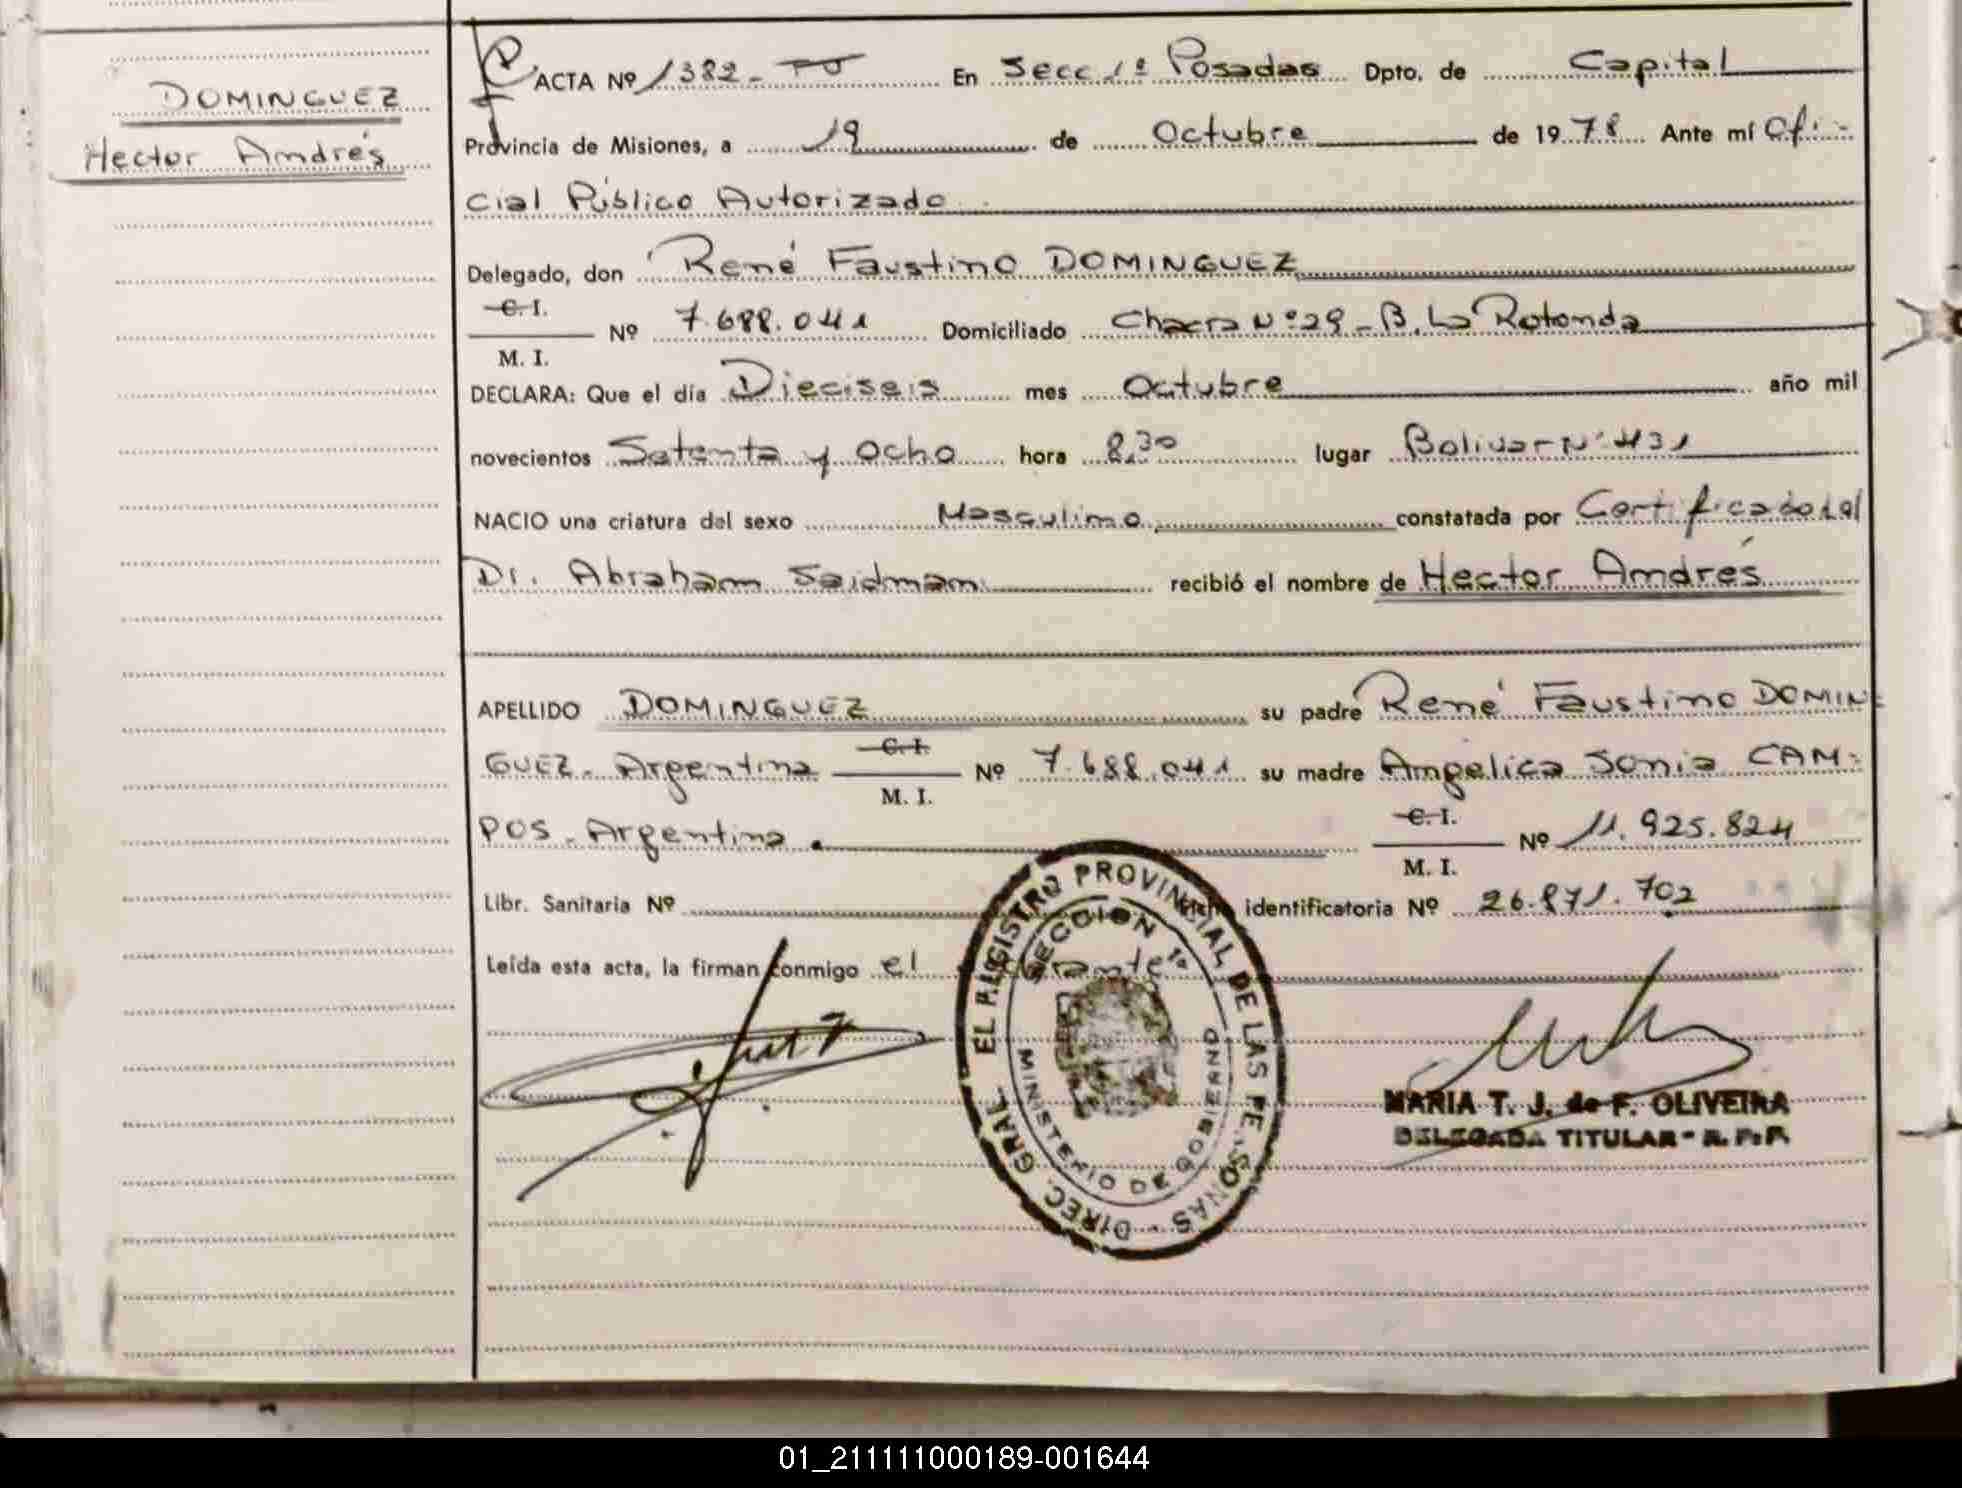 DOMINGUEZ
Hector Andrés
ACTA Nº 1382 - En Secc. 1ª Posadas Dpto. de Capital
Provincia de Misiones, a 19 de Octubre de 1978 Ante mí Ofi-
cial Público Autorizado
Delegado, don René Faustino DOMINGUEZ
C. I.
M. I. Nº 7.688.041 Domiciliado Chacra Nº 29 - B. La Rotonda
DECLARA: Que el día Dieciseis mes Octubre año mil
novecientos Setenta y Ocho hora 8,30 lugar Bolivar Nº 431
NACIO una criatura del sexo Masculino constatada por Certificado
Dr. Abraham Saidman recibió el nombre de Hector Andrés
APELLIDO DOMINGUEZ su padre René Faustino DOMIN-
GUEZ - Argentina C. I. M. I. Nº 7.688.041 su madre Angelica Sonia CAM-
POS - Argentina. C. I. M. I. Nº 11.925.824
Libr. Sanitaria Nº Ficha identificatoria Nº 26.871.702
Leída esta acta, la firman conmigo el
DIREC. GRAL. REGISTRO PROVINCIAL DE LAS PERSONAS
SECCION 1ª
MINISTERIO DE GOBIERNO
MARIA T. J. de F. OLIVEIRA
DELEGADA TITULAR - R. P. P.
01_211111000189-001644